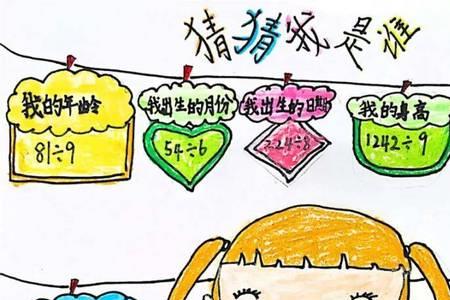 猜猜我是谁
我的年龄
81÷9
我出生的月份
54÷6
我出生的日期
224÷8
我的身高
1242÷9